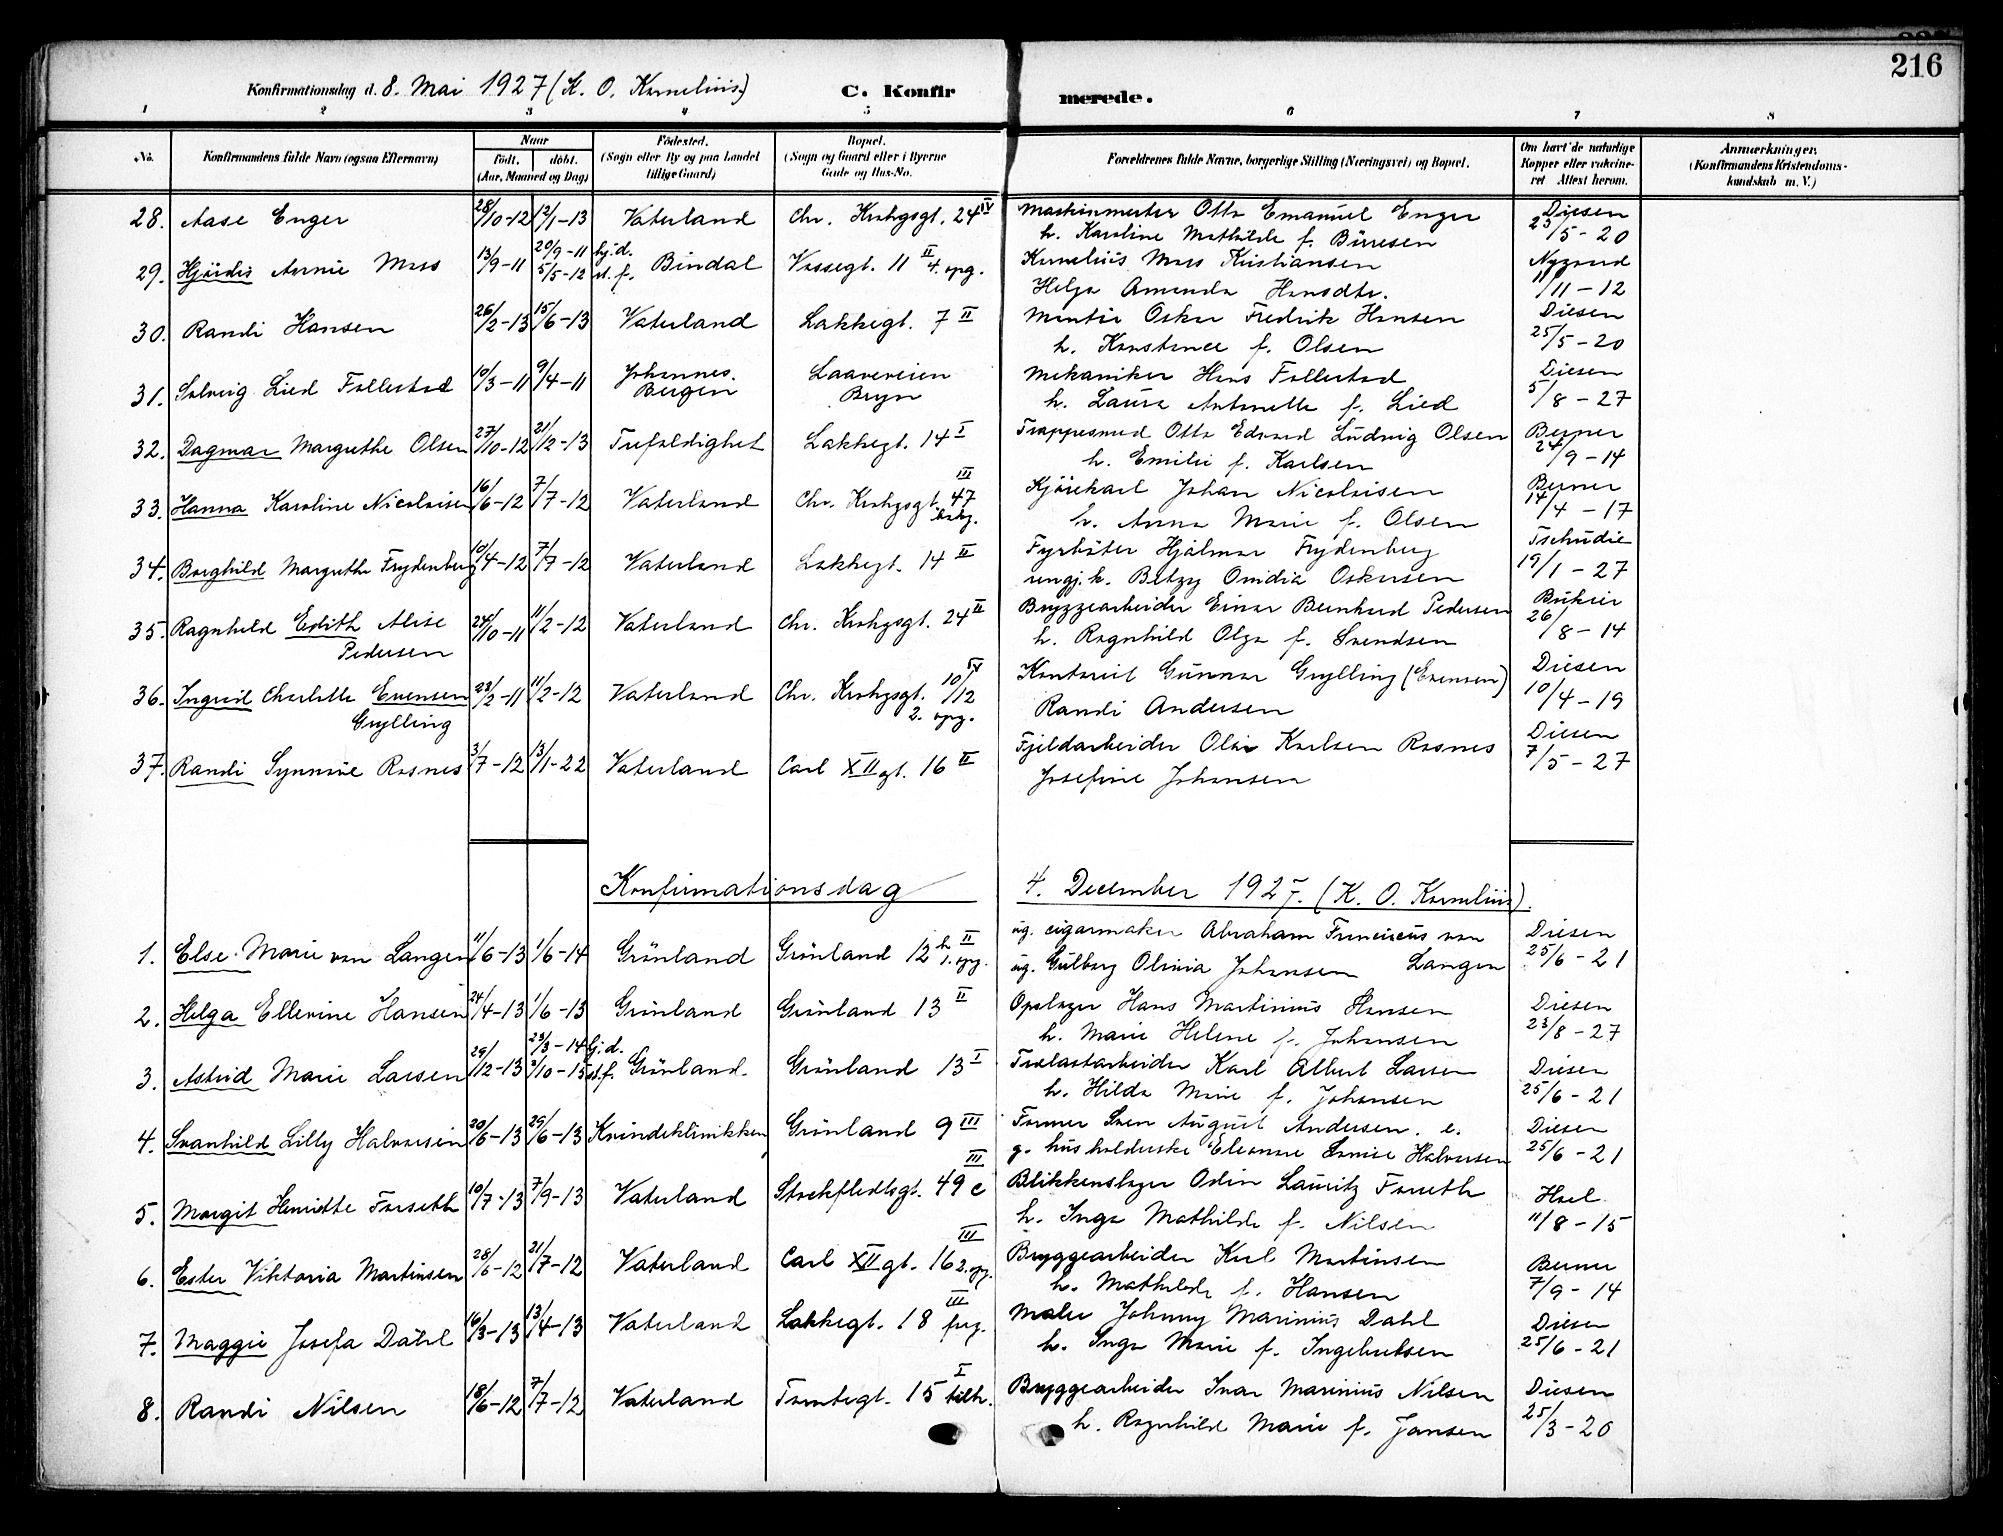 216
Konfirmationsdag d. 8. Mai 1927 (K. O. Kornelius) C. Konfirmerede.
1 2 3 4 5 6 7 8
No. Konfirmandens fulde Navn (ogsaa Efternavn) Naar født, døbt. (Aar, Maaned og Dag) Fødested. (Sogn eller By og paa Landet tillige Gaard) Bopæl. (Sogn og Gaard eller i Byerne Gade og Hus-No. Forældrenes fulde Navne, borgerlige Stilling (Næringsvei) og Bopæl. Om havt de naturlige Kopper eller vakcineret Attest herom. Anmærkninger. (Konfirmandens Kristendomskundskab m. V.)
28. Aase Enger 28/10-12 12/1-13 Vaterland Chr. Krohgsgt. 24 IV Maskinmester Otto Emanuel Enger Diesen
h. Karoline Mathilde f. Børresen 23/5-20
29. Hjördis Annie Moss 13/9-11 20/9-11 hj.d. 5/5-12 st.f. Bindal Vossegt. 11 II 4. opg. Kornelius Moss Kristiansen Nygaard
Helga Amanda Hansdtr. 11/11-12
30. Randi Hansen 26/2-13 15/6-13 Vaterland Lakkegt. 7 II Montør Oskar Fredrik Hansen Diesen
h. Konstance f. Olsen 25/5-20
31. Solveig Lied Follestad 10/3-11 9/4-11 Johannes. Bergen Laavereien Bryn Mekaniker Hans Follestad Diesen
h. Laura Antonette f. Lied 5/8-27
32. Dagmar Margrethe Olsen 27/10-12 21/12-13 Trefoldighet Lakkegt. 14 I Trappesmed Otto Edvard Ludvig Olsen Berner
h. Emilie f. Karlsen 24/9-14
33. Hanna Karoline Nicolaisen 16/6-12 7/7-12 Vaterland Chr. Krohgsgt. 47 III bakg. Kjørekarl Johan Nicolaisen Berner
h. Anna Marie f. Olsen 14/4-17
34. Borghild Margrethe Frydenberg 10/4-12 7/7-12 Vaterland Lakkegt. 14 II Fyrbøter Hjalmar Frydenberg Tschudie
rengj.h. Betzy Ovidia Oskarsen 19/1-27
35. Ragnhild Edith Alise 24/10-11 11/2-12 Vaterland Chr. Krohgsgt. 24 II Bryggearbeider Einar Bernhard Pedersen Bukier
Pedersen h. Ragnhild Olga f. Svendsen 26/8-14
36. Ingrid Charlotte Evensen 23/2-11 11/2-12 Vaterland Chr. Krohgsgt. 10/12 IV 2. opg. Kontorist Gunnar Grylling (Evensen) Diesen
Grylling Randi Andersen 10/4-19
37. Randi Synnøve Rosnes 3/7-12 13/1-22 Vaterland Carl XII gt. 16 II Fjeldarbeider Olai Karlsen Rosnes Diesen
Josefine Johansen 7/5-27
Konfirmationsdag 4. December 1927. (K. O. Kornelius).
1. Else Marie van Langen 11/6-13 1/6-14 Grönland Grönland 12 b II 1. opg. ug. cigarmaker Abraham Franciscus van Diesen
ug. Gulborg Olivia Johansen Langen 25/6-21
2. Helga Ellevine Hansen 24/4-13 1/6-13 Grönland Grönland 13 II Opslager Hans Martinius Hansen Diesen
h. Marie Helene f. Johansen 23/8-27
3. Astrid Marie Larsen 29/12-13 23/3-14 hj.d. 3/10-15 st.f. Grönland. Grönland 13 I Trælastarbeider Karl Albert Larsen Diesen
h. Hilda Marie f. Johansen 25/6-21
4. Svanhild Lilly Halvorsen 20/6-13 29/6-13 Kvindeklinikken Grönland 9 III Former Sven August Andersen. e. Diesen
g. husholderske Eleonore Lovise Halvorsen 25/6-21
5. Margit Henriette Forseth 10/7-13 7/9-13 Vaterland Stockfledtsgt. 49 c III Blikkenslager Odin Lauritz Forseth Hoel
h. Inga Mathilde f. Nilsen 11/8-15
6. Ester Viktoria Martinsen 28/6-12 21/7-12 Vaterland Carl XII gt. 16 III 2. opg. Bryggearbeider Karl Martinsen Berner
h. Mathilde f. Hansen 7/9-14
7. Maggie Josefa Dahl 16/3-13 13/4-13 Vaterland Lakkegt. 18 III Maler Johnny Marinius Dahl Diesen
h. Inga Marie f. Ingebretsen 25/6-21
8. Randi Nilsen 18/6-12 7/7-12 Vaterland Tomtegt. 15 I Bryggearbeider Ivar Marinius Nilsen Diesen
h. Ragnhild Marie f. Jansen 25/3-20